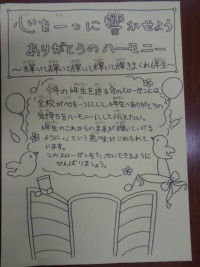 心を一つに響かせよう
ありがとうのハーモニー
今年の6年生を送る会のスローガンには
全校が心を一つにして、6年生へありがとうの
気持ちをハーモニーにして伝えたい。
6年生のこれからの未来が輝いていける
ように、という意味がこめられて
います。
このスローガンをたっせいできるように
がんばりましょう。